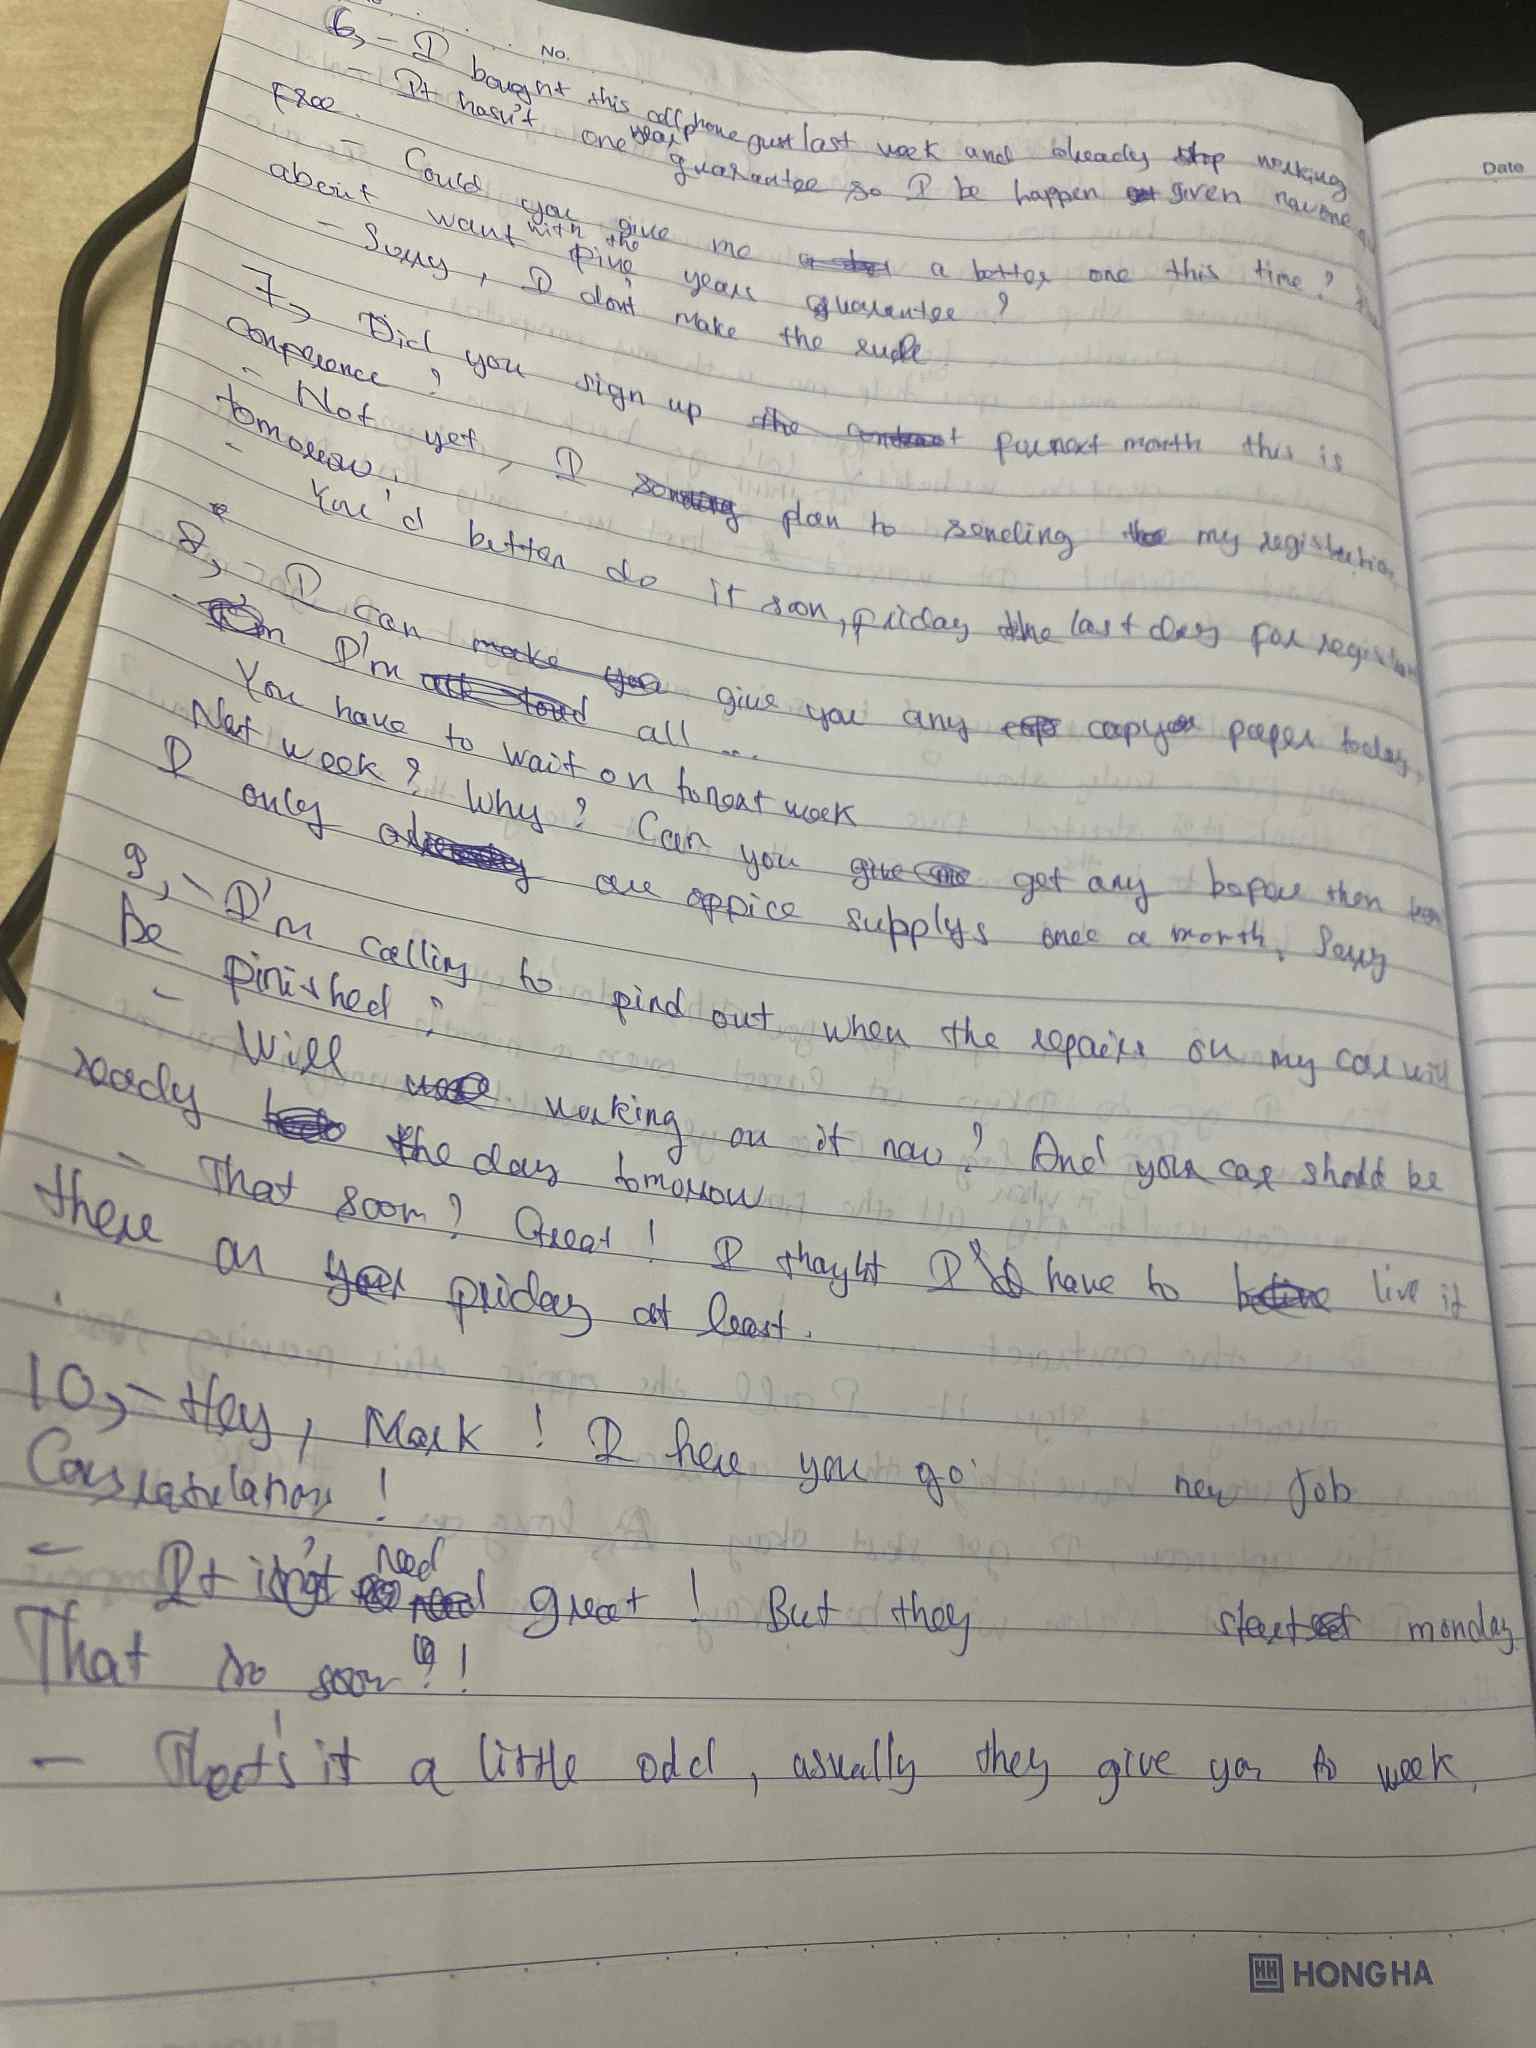 No.
6, - I bought this cellphone just last week and already stop working
- It hasn't one year guarantee so I be happen given new one
Free.
- Could you give me a better one this time?
about want with the five years guarantee?
- Sorry, I don't make the rule
7, Did you sign up the for next month this is
conference?
- Not yet, I plan to sending my registration
tomorrow.
- You'd better do it soon, friday the last day for
8, - I can give you any copy paper today,
- I'm all ...
You have to wait on to next week
Next week? Why? Can you get any before then
I only are office supplys once a month. Sorry
9, - I'm calling to find out when the repairs on my car will
be finished?
- Will working on it now? And your car should be
ready the day tomorrow
- That soon? Great! I thaught I'd have to live it
there on friday at least.
10, - Hey, Mark! I here you go new job
Congratulations!
- It isn't need great! But they start monday
That so soon?!
- That's it a little odd, asually they give you to week.
Date
HONG HA